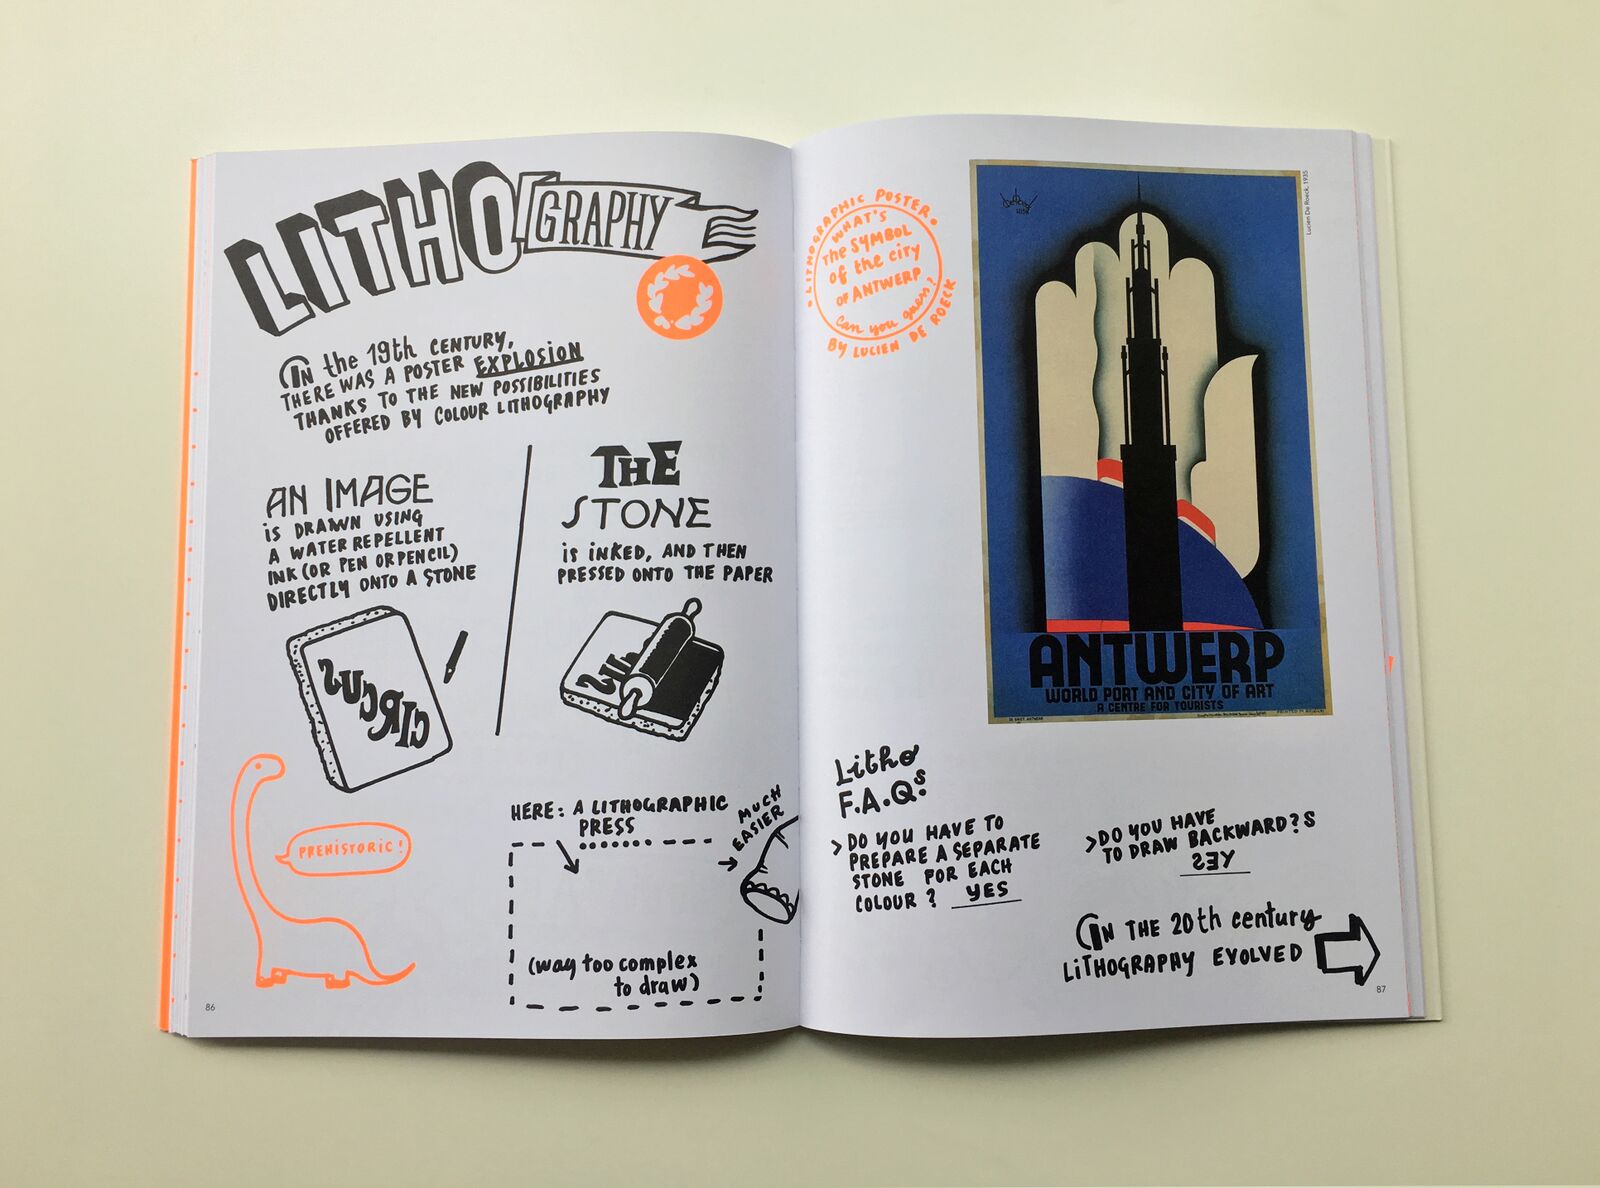 LITHOGRAPHY
IN the 19th CENTURY,
THERE WAS A POSTER EXPLOSION
THANKS TO THE NEW POSSIBILITIES
OFFERED BY COLOUR LITHOGRAPHY
AN IMAGE
is DRAWN USING
A WATER REPELLENT
INK (OR PEN OR PENCIL)
DIRECTLY ONTO A STONE
CIRCUS
THE
STONE
is iNKED, AND THEN
PRESSED ONTO THE PAPER
PREHISTORIC!
HERE: A LITHOGRAPHIC
PRESS
MUCH
EASIER
(way too complex
to draw)
86
LITHOGRAPHIC POSTER
WHAT'S
The SYMBOL
of the city
OF ANTWERP
Can you guess?
BY LUCIEN DE ROECK
Lucien De Roeck, 1935
ANTWERP
WORLD PORT AND CITY OF ART
A CENTRE FOR TOURISTS
Litho
F.A.Qs:
> DO YOU HAVE TO
PREPARE A SEPARATE
STONE FOR EACH
COLOUR? YES
> DO YOU HAVE
TO DRAW BACKWARD?S
YES
IN THE 20th century
LiTHOGRAPHY EVOLVED
87